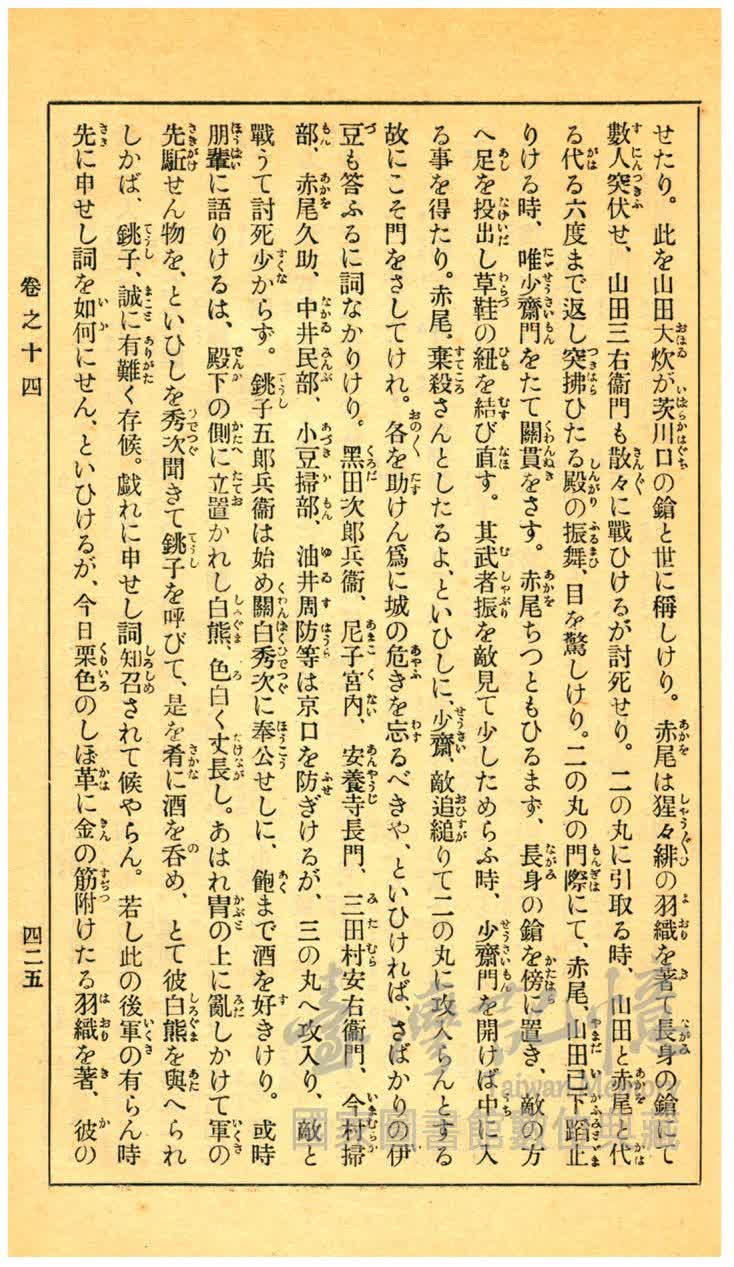 せたり。此を山田大炊が茨川口の鎗と世に稱しけり。赤尾は猩々緋の羽織を著て長身の鎗にて
數人突伏せ、山田三右衞門も散々に戰ひけるが討死せり。二の丸に引取る時、山田と赤尾と代
る代る六度まで返し突拂ひたる殿の振舞、目を驚しけり。二の丸の門際にて、赤尾、山田已下蹈止
りける時、唯少齋門をたて關貫をさす。赤尾ちつともひるまず、長身の鎗を傍に置き、敵の方
へ足を投出し草鞋の紐を結び直す。其武者振を敵見て少しためらふ時、少齋門を開けば中に入
る事を得たり。赤尾、棄殺さんとしたるよ、といひしに、少齋、敵追縋りて二の丸に攻入らんとする
故にこそ門をさしてけれ。各を助けん爲に城の危きを忘るべきや、といひければ、さばかりの伊
豆も答ふるに詞なかりけり。黑田次郎兵衞、尼子宮内、安養寺長門、三田村安右衞門、今村掃
部、赤尾久助、中井民部、小豆掃部、油井周防等は京口を防ぎけるが、三の丸へ攻入り、敵と
戰うて討死少からず。銚子五郎兵衞は始め關白秀次に奉公せしに、飽まで酒を好きけり。或時
朋輩に語りけるは、殿下の側に立置かれし白熊、色白く丈長し。あはれ冑の上に亂しかけて軍の
先駈せん物を、といひしを秀次聞きて銚子を呼びて、是を肴に酒を呑め、とて彼白熊を與へられ
しかば、銚子、誠に有難く存候。戲れに申せし詞知召されて候やらん。若し此の後軍の有らん時
先に申せし詞を如何にせん、といひけるが、今日栗色のしぼ革に金の筋附けたる羽織を著、彼の
卷之十四
四二五
臺灣記憶
Taiwan Memory
國家圖書館數位典藏